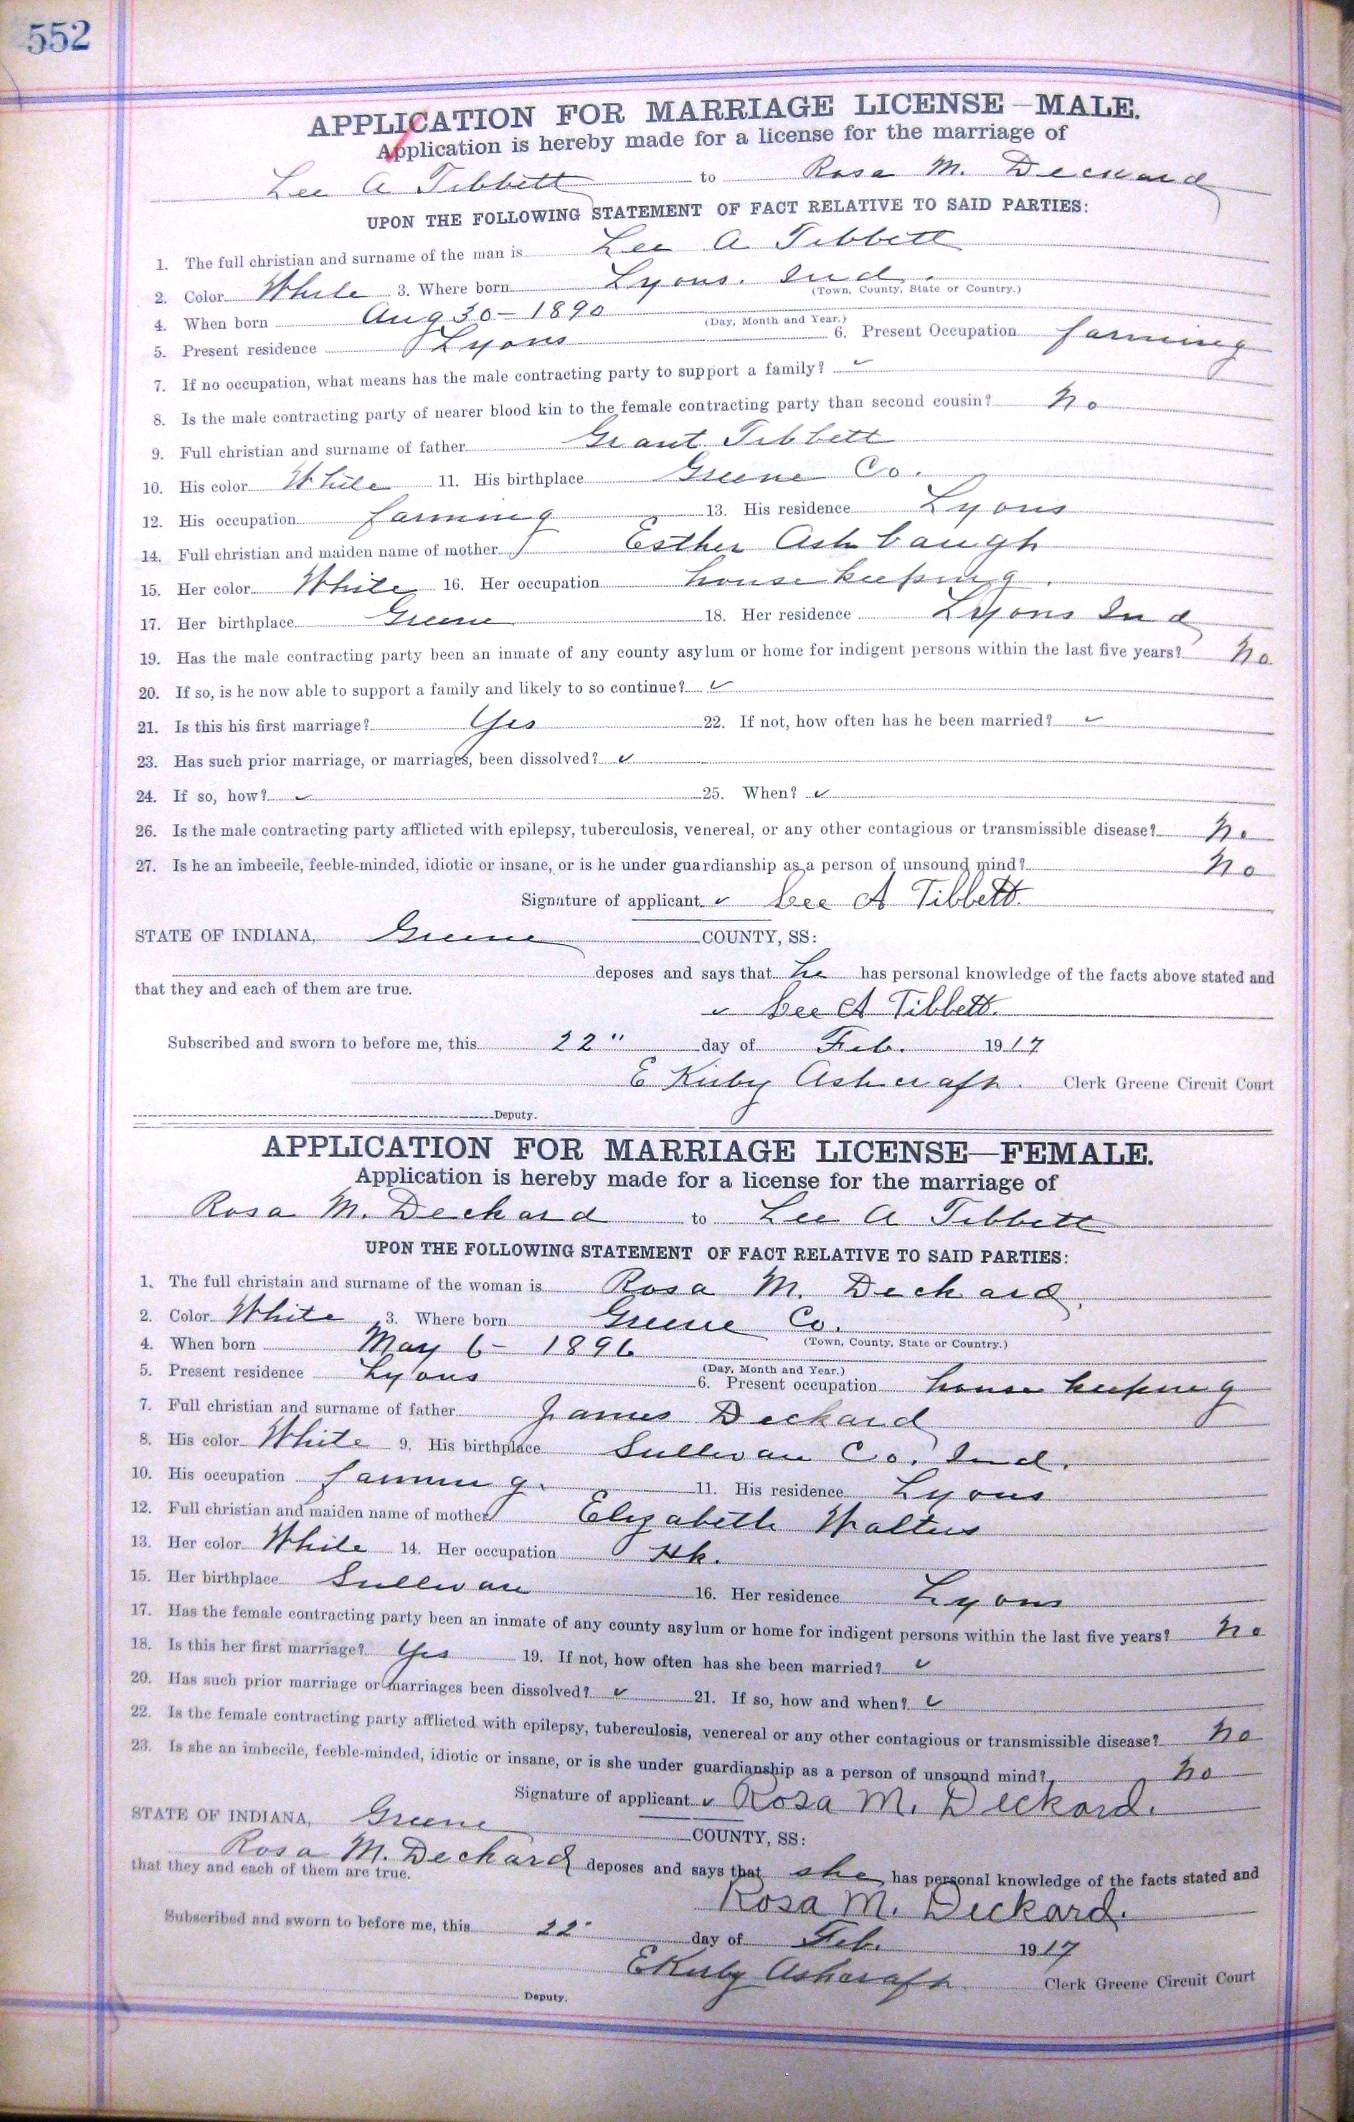 552
APPLICATION FOR MARRIAGE LICENSE—MALE.
Application is hereby made for a license for the marriage of
Lee A Tibbett to Rosa M. Deckard
UPON THE FOLLOWING STATEMENT OF FACT RELATIVE TO SAID PARTIES:
1. The full christian and surname of the man is Lee A Tibbett
2. Color White 3. Where born Lyons. Ind.
(Town, County, State or Country.)
4. When born Aug 30-1890
(Day, Month and Year.)
5. Present residence Lyons 6. Present Occupation farming
7. If no occupation, what means has the male contracting party to support a family? ✓
8. Is the male contracting party of nearer blood kin to the female contracting party than second cousin? no
9. Full christian and surname of father Grant Tibbett
10. His color White 11. His birthplace Greene Co.
12. His occupation farming 13. His residence Lyons
14. Full christian and maiden name of mother Esther Ashbaugh
15. Her color White 16. Her occupation housekeeping.
17. Her birthplace Greene 18. Her residence Lyons Ind
19. Has the male contracting party been an inmate of any county asylum or home for indigent persons within the last five years? No
20. If so, is he now able to support a family and likely to so continue? ✓
21. Is this his first marriage? Yes 22. If not, how often has he been married? ✓
23. Has such prior marriage, or marriages, been dissolved? ✓
24. If so, how? ✓ 25. When? ✓
26. Is the male contracting party afflicted with epilepsy, tuberculosis, venereal, or any other contagious or transmissible disease? No
27. Is he an imbecile, feeble-minded, idiotic or insane, or is he under guardianship as a person of unsound mind? No
Signature of applicant ✓ Lee A Tibbett.
STATE OF INDIANA, Greene COUNTY, SS:
deposes and says that he has personal knowledge of the facts above stated and
that they and each of them are true.
✓ Lee A Tibbett.
Subscribed and sworn to before me, this 22" day of Feb. 1917
E Kirby Ashcraft. Clerk Greene Circuit Court
Deputy.
APPLICATION FOR MARRIAGE LICENSE—FEMALE.
Application is hereby made for a license for the marriage of
Rosa M. Deckard to Lee A Tibbett
UPON THE FOLLOWING STATEMENT OF FACT RELATIVE TO SAID PARTIES:
1. The full christain and surname of the woman is Rosa M. Deckard.
2. Color White 3. Where born Greene Co.
(Town, County, State or Country.)
4. When born May 6- 1896
(Day, Month and Year.)
5. Present residence Lyons 6. Present occupation housekeeping
7. Full christian and surname of father James Deckard
8. His color White 9. His birthplace Sullivan Co. Ind.
10. His occupation farming. 11. His residence Lyons
12. Full christian and maiden name of mother Elizabeth Walters
13. Her color White 14. Her occupation Hk.
15. Her birthplace Sullivan 16. Her residence Lyons
17. Has the female contracting party been an inmate of any county asylum or home for indigent persons within the last five years? No
18. Is this her first marriage? Yes 19. If not, how often has she been married? ✓
20. Has such prior marriage or marriages been dissolved? ✓ 21. If so, how and when? ✓
22. Is the female contracting party afflicted with epilepsy, tuberculosis, venereal or any other contagious or transmissible disease? No
23. Is she an imbecile, feeble-minded, idiotic or insane, or is she under guardianship as a person of unsound mind? No
Signature of applicant ✓ Rosa M. Deckard.
STATE OF INDIANA, Greene COUNTY, SS:
Rosa M. Deckard deposes and says that she has personal knowledge of the facts stated and
that they and each of them are true.
Rosa M. Deckard.
Subscribed and sworn to before me, this 22" day of Feb. 1917
E Kirby Ashcraft Clerk Greene Circuit Court
Deputy.